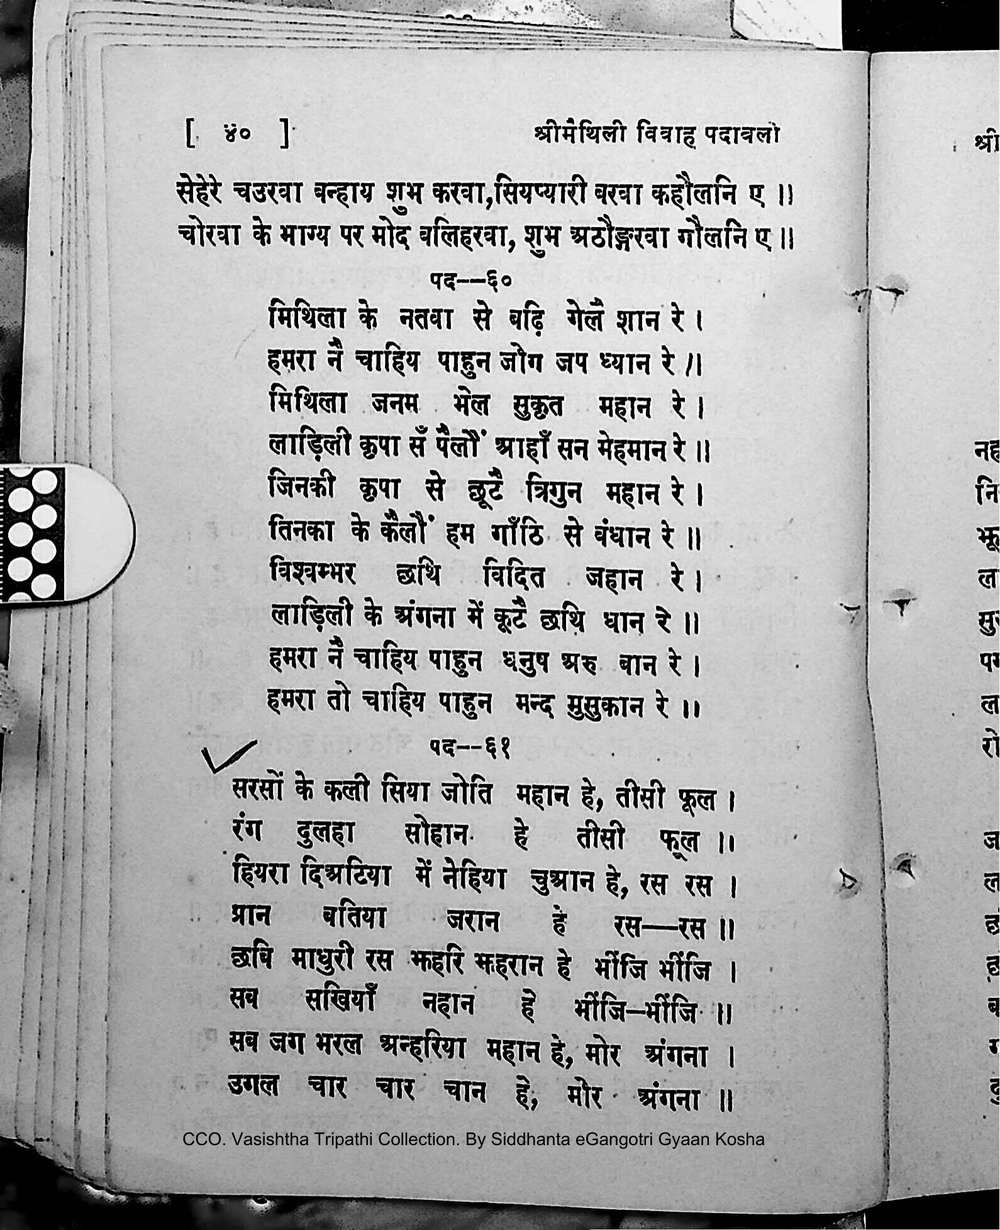 [ ४० ] श्रीमैथिली विवाह पदावली
सेहेरे चउरवा बन्हाय शुभ करवा,सियप्यारी बरवा कहौलनि ए ॥
चोरवा के भाग्य पर मोद बलिहरवा, शुभ अठौङ्गरवा गौलनि ए ॥
पद--६०
मिथिला के नतवा से बढ़ि गेलै शान रे ।
हमरा नै चाहिय पाहुन जोग जप ध्यान रे ॥
मिथिला जनम भेल सुकृत महान रे ।
लाड़िली कृपा सँ पैलौं आहाँ सन मेहमान रे ॥
जिनकी कृपा से छूटै त्रिगुन महान रे ।
तिनका के कैलौं हम गाँठि से बंधान रे ॥
विश्वम्भर छथि विदित जहान रे ।
लाड़िली के अंगना में कूटै छथि धान रे ॥
हमरा नै चाहिय पाहुन धनुष अरु बान रे ।
हमरा तो चाहिय पाहुन मन्द मुसुकान रे ॥
पद--६१
सरसों के कली सिया जोति महान हे, तीसी फूल ।
रंग दुलहा सोहान हे तीसी फूल ॥
हियरा दिअटिया में नेहिया चुआन हे, रस रस ।
प्रान बतिया जरान हे रस—रस ॥
छबि माधुरी रस झहरि झहरान हे भींजि भींजि ।
सब सखियाँ नहान हे भींजि–भींजि ॥
सब जग भरल अन्हरिया महान हे, मोर अंगना ।
उगल चार चार चान हे, मोर अंगना ॥
CCO. Vasishtha Tripathi Collection. By Siddhanta eGangotri Gyaan Kosha
श्री
नह
नि
झू
ल
सु
ल
रो
ज
ल
ब